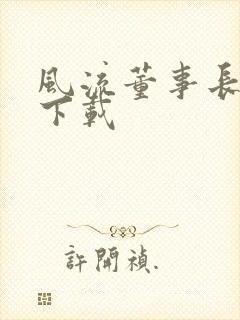 風流董事長
下載
許開禎.